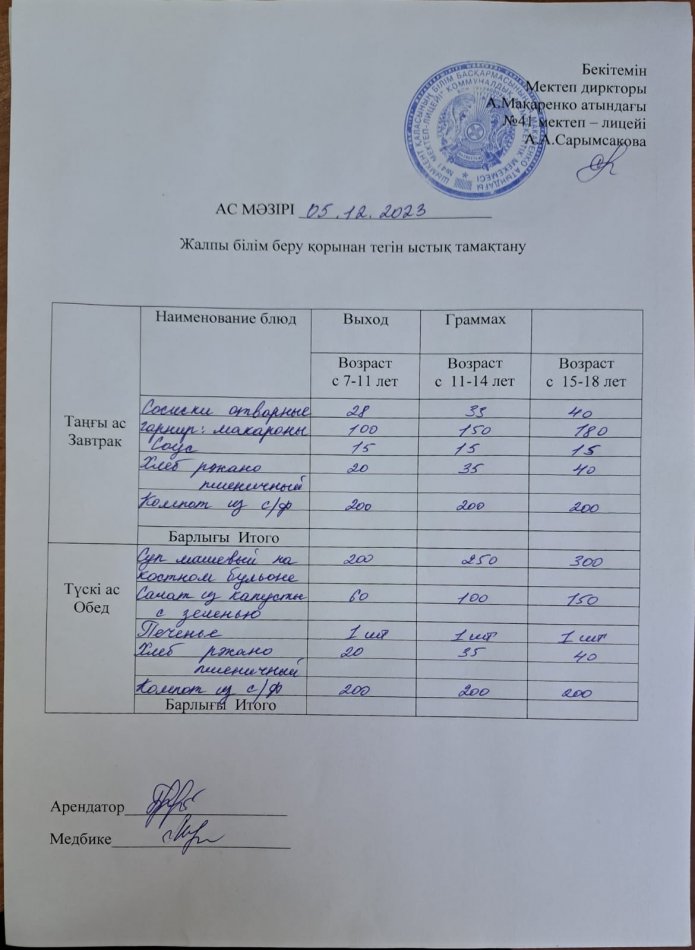 Бекітемін
Мектеп диркторы
А.Макаренко атындағы
№41 мектеп – лицейі
А.А.Сарымсакова
АС МӘЗІРІ 05.12.2023
Жалпы білім беру қорынан тегін ыстық тамақтану
Наименование блюд Выход Граммах
Возраст с 7-11 лет Возраст с 11-14 лет Возраст с 15-18 лет
Таңғы ас
Завтрак
Сосиски отварные 28 35 40
гарнир: макароны 100 150 180
Соус 15 15 15
Хлеб ржано 20 35 40
пшеничный
Компот из с/ф 200 200 200
Барлығы Итого
Түскі ас
Обед
Суп машевый на 200 250 300
костном бульоне
Салат из капусты 60 100 150
с зеленью
Печенье 1 шт 1 шт 1 шт
Хлеб ржано 20 35 40
пшеничный
Компот из с/ф 200 200 200
Барлығы Итого
Арендатор
Медбике